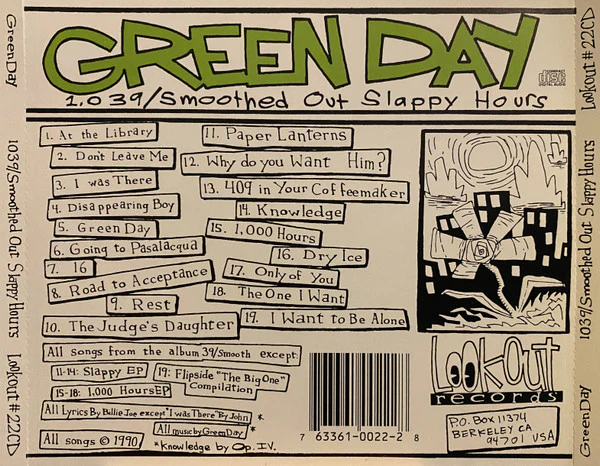 GREEN DAY
1,039/Smoothed Out Slappy Hours
1. At the Library
2. Don't Leave Me
3. I was There
4. Disappearing Boy
5. Green Day
6. Going to Pasalacqua
7. 16
8. Road to Acceptance
9. Rest
10. The Judge's Daughter
11. Paper Lanterns
12. Why do you Want Him?
13. 409 in Your Coffeemaker
14. Knowledge
15. 1,000 Hours
16. Dry Ice
17. Only of You
18. The One I Want
19. I Want to Be Alone
All songs from the album 39/Smooth except:
11-14: Slappy EP
19: Flipside "The Big One" Compilation
15-18: 1,000 Hours EP
All Lyrics By Billie Joe except "I was There" By John
All music by Green Day *
All songs © 1990
*Knowledge by Op. IV.
7 63361-0022-2 8
Lookout
records
P.O. Box 11374
BERKELEY CA
94701 USA
Green Day 1039/Smoothed Out Slappy Hours Lookout #22CD
Green Day 1039/Smoothed Out Slappy Hours Lookout #22CD